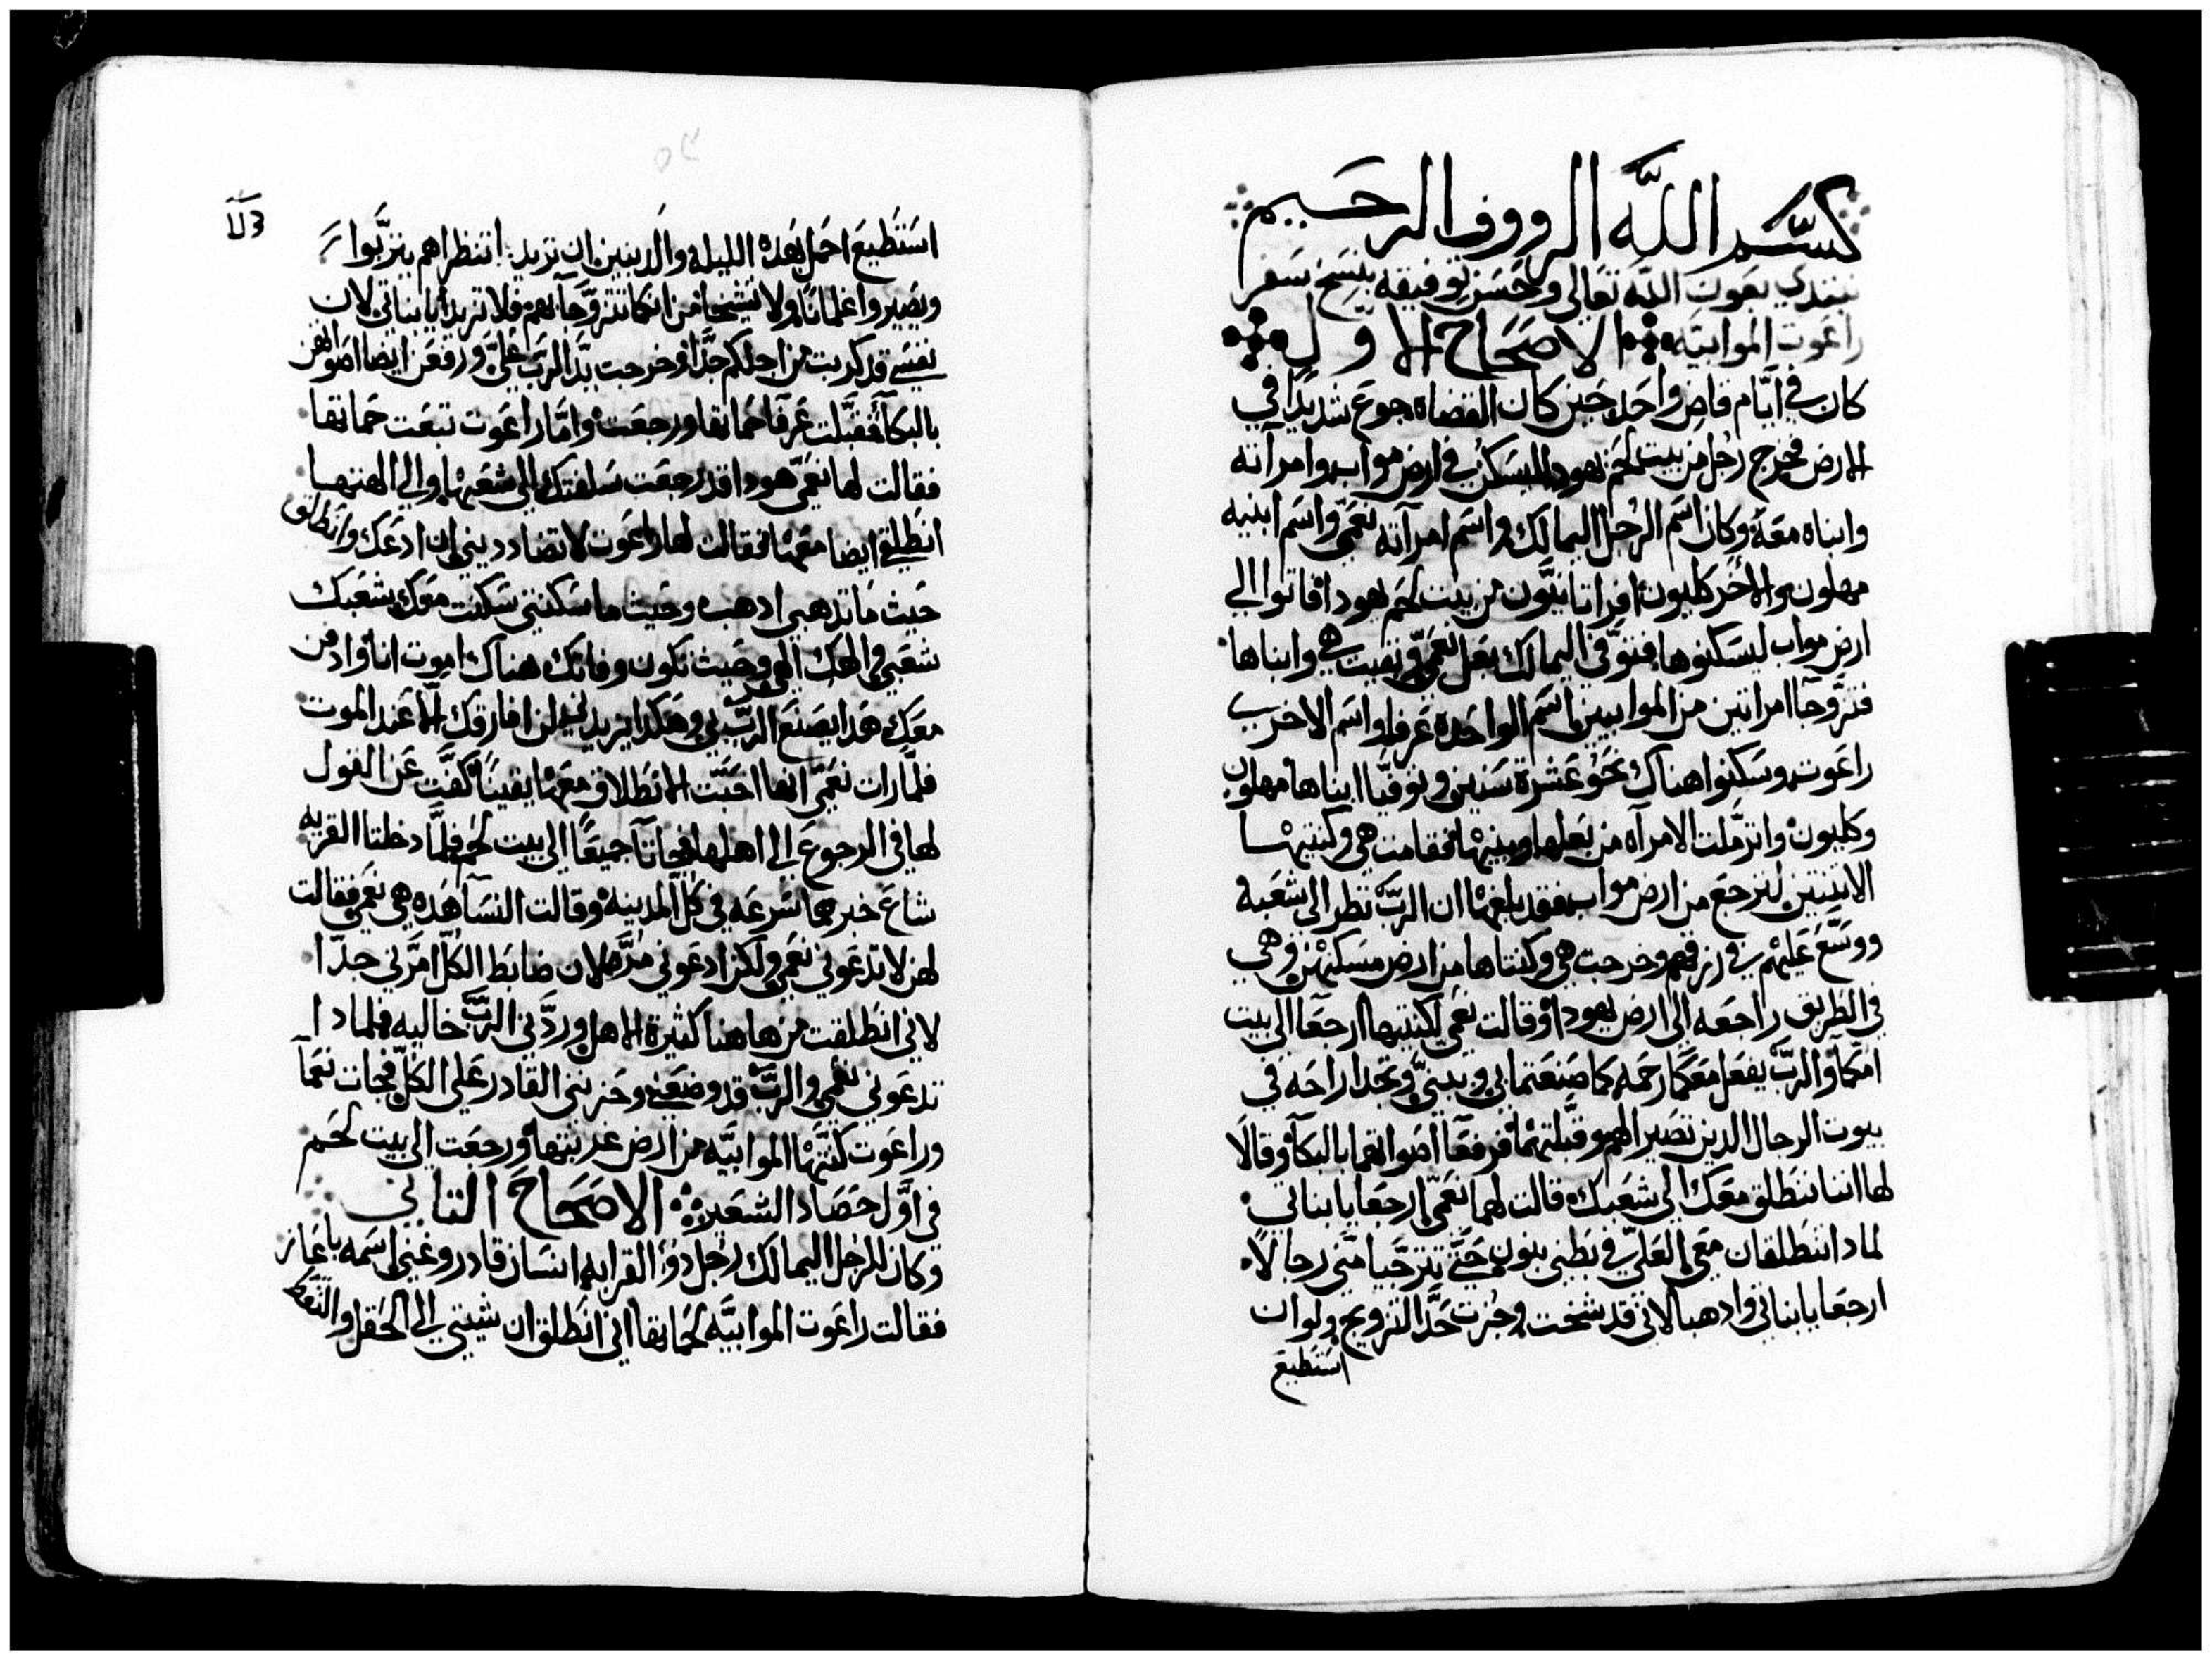 بسم الله الرووف الرحيم
نبتدي بعون الله تعالى وحسن توفيقه بنسخ سفر
راعوت الموابيه الاصحاح الاول
كان في ايام قاض واحد حين كان القضاه جوع شديدا في
الارض فخرج رجل من بيت لحم يهودا ليسكن في ارض مواب وامراته
وابناه معه وكان اسم الرجل اليمالك واسم امراته نعمي واسم ابنيه
مهلون والاخر كليون افراتانيون من بيت لحم يهودا فاتوا الي
ارض مواب ليسكنوها فتوفي اليمالك بعل نعمي وبقيت هي وابناها
فتزوجا امراتين من الموابيين اسم الواحده عرفا واسم الاخري
راعوت وسكنوا هناك نحو عشرة سنين وتوفيا ابناها مهلون
وكليون واترملت الامراه من بعلها وبنيها فقامت هي وكنتيها
الاثنتين لترجع من ارض مواب فقد بلغها ان الرب نظر الى شعبه
ووسع عليهم في رزقهم وخرجت هي وكنتاها من ارض مسكنهن وهي
في الطريق راجعه الى ارض يهودا وقالت نعمي لكنتيها ارجعا الى بيت
امكما والرب يفعل معكما رحمه كما صنعتما بي وببني وتجدا راحه في
بيوت الرجال الدين تصيرا لهم وقبلتهما فرفعا اصواتهما بالبكا وقالا
لها اننا ننطلق معك الي شعبك قالت لهما نعمي ارجعا يا بناتي
لمادا تنطلقان معي العلي في بطني بنون حتي تترجيا مني رجالا
ارجعا يا بناتي وادهبا لاني قد شخت وجزت حد التزويج ولو ان
استطيع
استطيع احمل بهده الليله والد بنين ان تريد انتنظراهم يتربوا
ويصيروا غلمانا ولا تشيخا من انكما تتزوجا بهم فلا تريدا يا بناتي لان
نفسي قد كربت من اجلكم جدا وخرجت يد الرب علي ورفعن ايضا اصواتهن
بالبكا فقبلت عرفا حماتها ورجعت واما راعوت تبعت حماتها
فقالت لها نعمي هودا قد رجعت سلفتك الي شعبها والي الهتها
انطلقي ايضا معها فقالت لها راعوت لا تضاددينى ان ادعك وانطلق
حيث ما تدهبي ادهب وحيث ما سكنتي سكنت معك شعبك
شعبي والهك الهي وحيث تكون وفاتك هناك اموت انا وادفن
معك هدا يصنع الرب بي وهكدا يزيدني لن افارقك الا عند الموت
فلما رات نعمي انها احبت الانطلاق معها يقينا كفت عن القول
لها في الرجوع الي اهلها فجاتا جميعا الى بيت لحم فلما دخلتا القريه
شاع خبرهما سرعه في كل المدينه وقالت النسا هده هي نعمي فقالت
لهن لا تدعوني نعمي ولكن ادعوني مره لان ضابط الكل امرني جدا
لاني انطلقت من هاهنا كثيرة الاهل وردني الرب خاليه فلمادا
تدعوني نعمي والرب قد وضعني وحزنني القادر علي الكل فجات نعما
وراعوت كنتها الموابيه من ارض غربتها ورجعت الى بيت لحم
في اول حصاد الشعير الاصحاح التاني
وكان للرجل اليمالك رجل دو القرابه انسان قادر وغني اسمه باعاز
فقالت راعوت الموابيه لحماتها اني انطلق ان شيتي الي الحقل والتقط